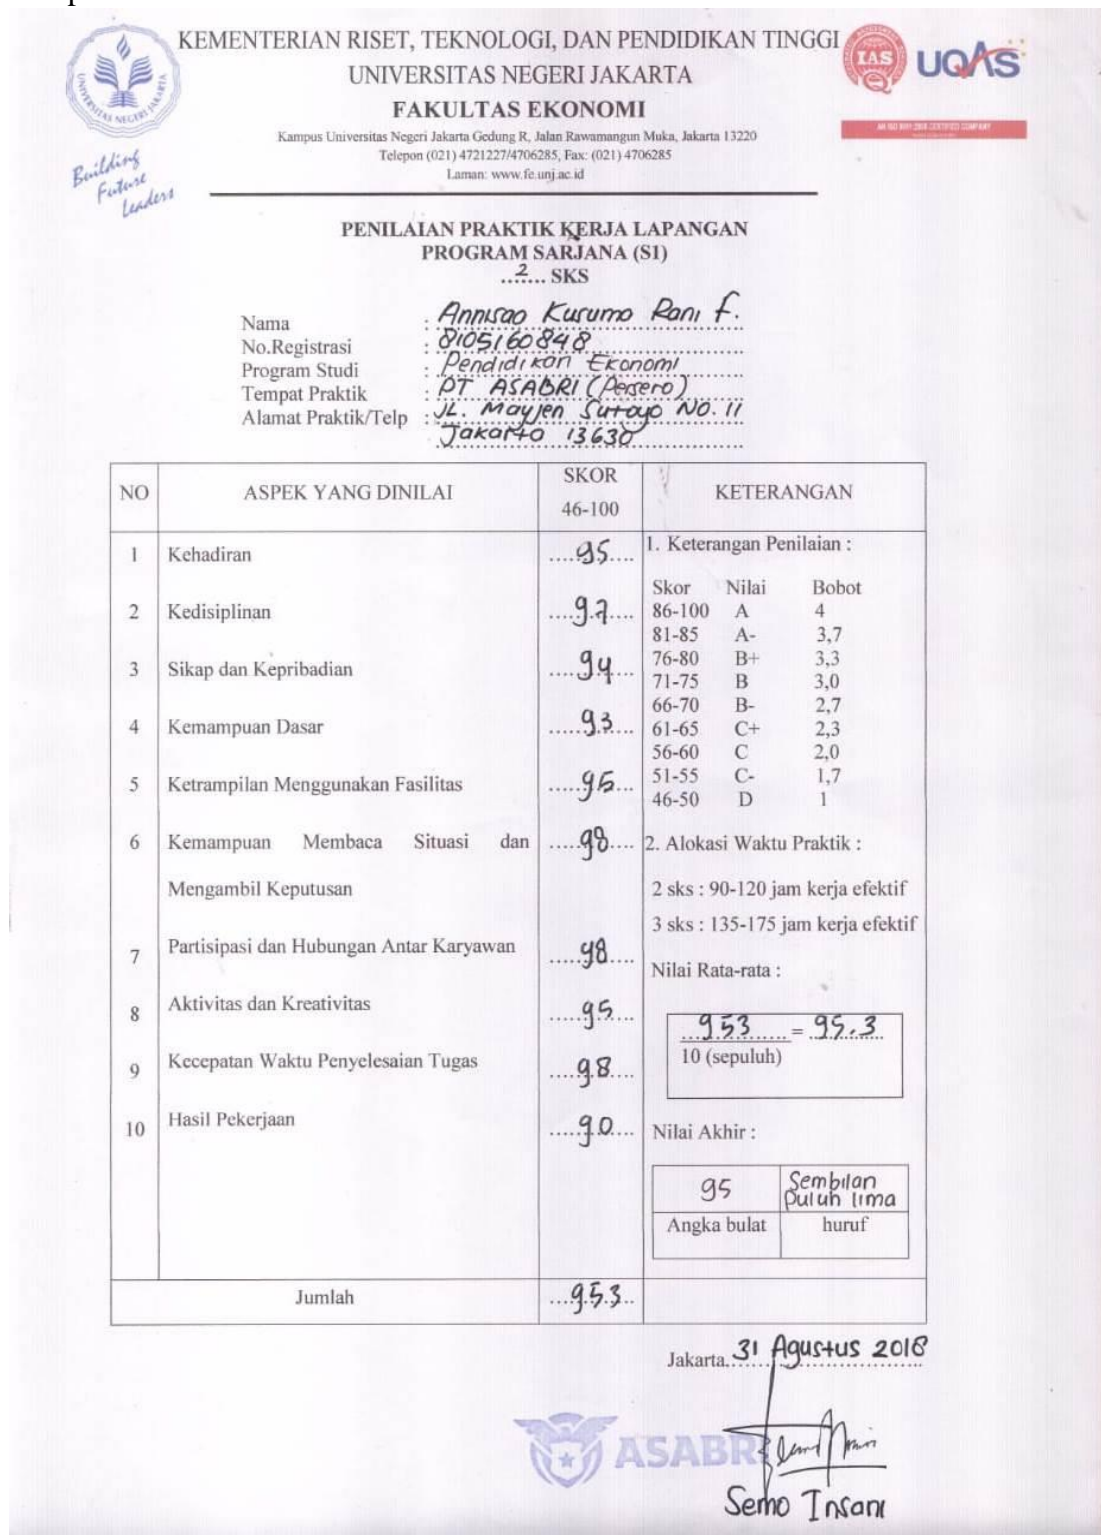 KEMENTERIAN RISET, TEKNOLOGI, DAN PENDIDIKAN TINGGI
UNIVERSITAS NEGERI JAKARTA
FAKULTAS EKONOMI
Kampus Universitas Negeri Jakarta Gedung R, Jalan Rawamangun Muka, Jakarta 13220
Telepon (021) 4721227/4706285, Fax: (021) 4706285
Laman: www.fe.unj.ac.id
UNIVERSITAS NEGERI JAKARTA
Building
Future
Leaders
IAS
UQAS
AN ISO 9001:2008 CERTIFIED COMPANY
PENILAIAN PRAKTIK KERJA LAPANGAN
PROGRAM SARJANA (S1)
...2... SKS
Nama : Annisao Kusumo Rani F.
No.Registrasi : 8105160848
Program Studi : Pendidikan Ekonomi
Tempat Praktik : PT ASABRI (Persero)
Alamat Praktik/Telp : JL. Mayjen Sutoyo NO. 11
Jakarta 13630
NO ASPEK YANG DINILAI SKOR 46-100 KETERANGAN
1 Kehadiran 95
2 Kedisiplinan 97
3 Sikap dan Kepribadian 94
4 Kemampuan Dasar 93
5 Ketrampilan Menggunakan Fasilitas 95
6 Kemampuan Membaca Situasi dan 98
Mengambil Keputusan
7 Partisipasi dan Hubungan Antar Karyawan 98
8 Aktivitas dan Kreativitas 95
9 Kecepatan Waktu Penyelesaian Tugas 98
10 Hasil Pekerjaan 90
1. Keterangan Penilaian :
Skor Nilai Bobot
86-100 A 4
81-85 A- 3,7
76-80 B+ 3,3
71-75 B 3,0
66-70 B- 2,7
61-65 C+ 2,3
56-60 C 2,0
51-55 C- 1,7
46-50 D 1
2. Alokasi Waktu Praktik :
2 sks : 90-120 jam kerja efektif
3 sks : 135-175 jam kerja efektif
Nilai Rata-rata :
953 = 95.3
10 (sepuluh)
Nilai Akhir :
95 Sembilan
puluh lima
Angka bulat huruf
Jumlah 953
Jakarta, 31 Agustus 2018
ASABRI
Semo Insani